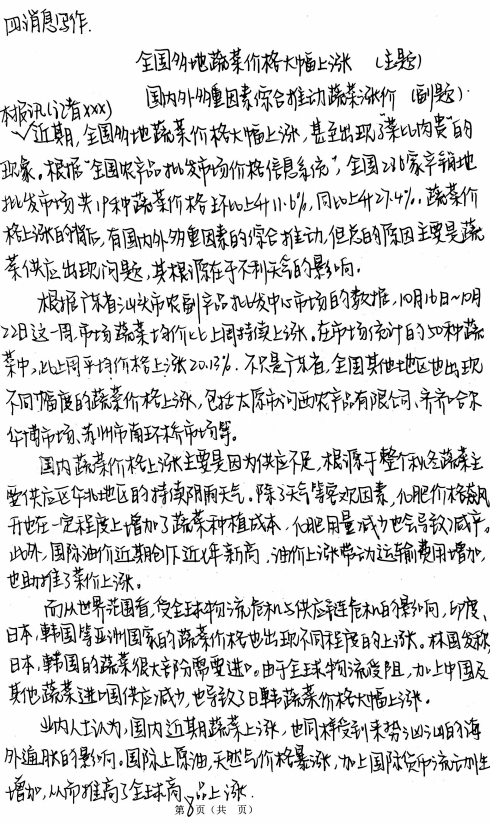 四消息写作.
全国多地蔬菜价格大幅上涨 (主题)
国内外多重因素综合推动蔬菜涨价 (副题).
本报讯(记者xxx)
近期,全国多地蔬菜价格大幅上涨,甚至出现了"菜比肉贵"的
现象。根据"全国农产品批发市场价格信息系统",全国236家产销地
批发市场共19种蔬菜价格环比上升11.6%,同比上升27.4%.蔬菜价
格上涨的背后,有国内外多重因素的综合推动,但总的原因主要是蔬
菜供应出现问题,其根源在于不利天气的影响.
根据广东省汕头市农副产品批发中心市场的数据,10月16日~10月
22日这一周,市场蔬菜均价比上周持续上涨。在市场统计的50种蔬
菜中,比上周平均价格上涨20.13%.不只是广东省,全国其他地区也出现
不同幅度的蔬菜价格上涨,包括太原市河西农产品有限公司、齐齐哈尔
华博市场、苏州市南环桥市场等。
国内蔬菜价格上涨主要是因为供应不足,根源于整个秋冬蔬菜主
要供应区华北地区的持续阴雨天气。除了天气等客观因素,化肥价格飙
升也在一定程度上增加了蔬菜种植成本,化肥用量减少也会导致减产。
此外,国际油价近期创下近年新高,油价上涨带动运输费用增加,
也助推了菜价上涨。
而从世界范围看,受全球物流危机与供应链危机的影响,印度、
日本,韩国等亚洲国家的蔬菜价格也出现不同程度的上涨。林国发称,
日本,韩国的蔬菜很大部分需要进口。由于全球物流受阻,加上中国及
其他蔬菜进口国供应减少,也导致了日韩蔬菜价格大幅上涨.
业内人士认为,国内近期蔬菜上涨,也同样受到来势汹汹的海
外通胀的影响。国际上原油,天然气价格暴涨,加上国际货币流动性
增加,从而推高了全球商品上涨.
第8页(共 页)